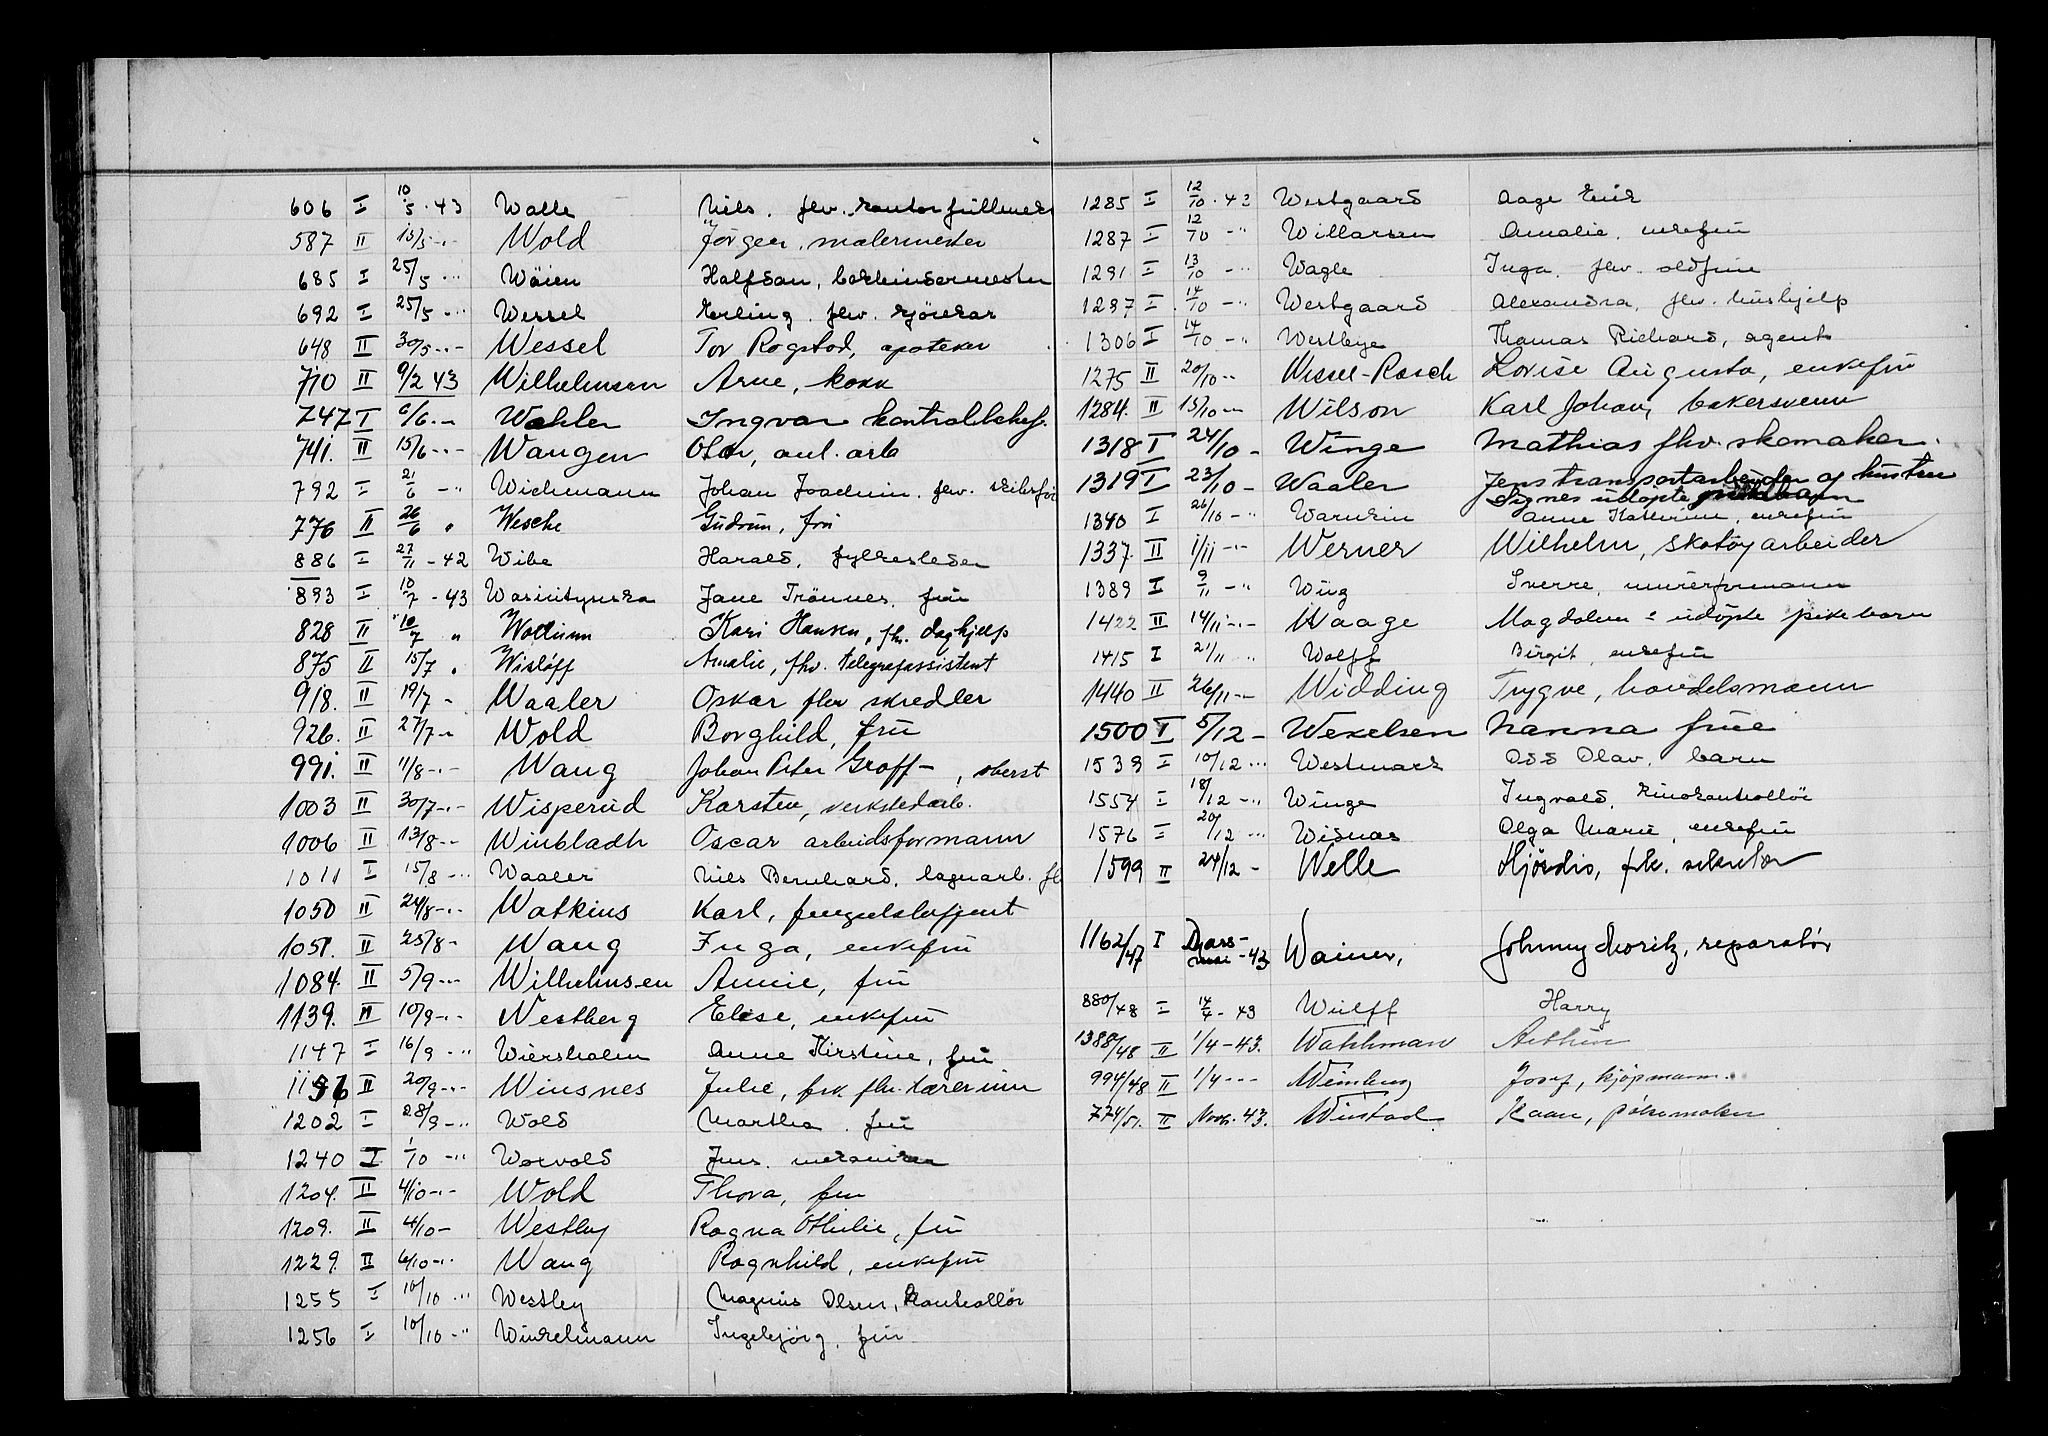 606 I 10/5 - 43 Walle Niels. fhv.
587 II 15/5 -"- Wold Jörgen, malermester
685 I 25/5 -"- Wöien Halfdan,
692 I 25/5 -"- Wessel Erling. fhv.
648 II 30/5 -"- Wessel Tor Rogstad, apoteker
710 II 9/2 43 Wilhelmsen Arne, kokk
747 I 6/6 -"- Wahler Ingvar
741. II 15/6 -"- Wangen Olav, anl. arb
792 I 21/6 -"- Wichmann Johan Joachim. fhv.
776 II 26/6 " Wesche Gudrun, fru
886 I 27/11 - 42 Wibe Harald, fylkesleder
893 I 10/7 - 43 Jane Trönnes. fru
828 II 10/7 " Wollum Kari Hansen, fhv. daghjelp
875 II 15/7 " Wisløff Amalie, fhv. telegrafassistent
918. II 19/7 - Waaler Oskar fhv skredder
926. II 27/7 -"- Wold Borghild, fru
991. II 11/8 -"- Wang Johan Peter Graff -, oberst
1003 II 30/7 -"- Wisperud Karsten, verkstedarb.
1006 II 13/8 -"- Winbladh Oscar arbeidsformann
1011 I 15/8 -"- Waaler Niels Bernhard. lagerarb.
1050 II 24/8 -"- Watkins Karl, fengselsbetjent
1051. II 25/8 - Wang Inga, enkefru
1084. II 5/9 -"- Wilhelmsen Annie, fru
1139. II 10/9 -"- Westberg Elise, enkefru
1147 I 16/9 -"- Wiersholm Anne Kirstine, fru
1156 II 20/9 -"- Winsnes Julie, frk. fhv. lærerinne
1202 I 28/9 -"- Wold Martha. fru
1240 I 1/10 -"- Worvold Jens. mekaniker
1204. II 4/10 -"- Wold Thora, fru
1209. II 4/10 - Westby Ragna Othilie, fru
1229. II 6/10 -"- Wang Ragnhild, enkefru
1255 I 10/10 -"- Westley Magnus Olsen, kontrollör
1256 I 10/10 -"- Winkelmann Ingebjörg. fru
1285 I 12/10 - 43 Westgaard Aage Eirik
1287 I 12/10 -"- Willarsen Amalie. enkefru
1291 I 13/10 -"- Wagle Inga. fhv. oldfrue
1297 I 14/10 -"- Westgaard Alexandra, fhv. hushjelp
1306 I 14/10 -"- Westbye Thomas Richard, agent
1275 II 20/10 -"- Wessel-Rasch Lovise Augusta, enkefru
1284. II 15/10 -"- Wilson Karl Johan, bakersvenn
1318 I 24/10 - Winge Mathias fhv. skomaker.
1319 I 23/10 - Waaler Jens transportarbeider og hustru
Signes udøpte pikebarn
1340 I 26/10 -"- Warukin Anne Kathrine. enkefru
1337 II 1/11 -"- Werner Wilhelm, skotøyarbeider
1389 I 9/11 -"- Wiig Sverre, murerformann
1422 II 14/11 -"- Waage Magdalena's udöpte pikebarn
1415 I 21/11 -"- Wolff Birgit, enkefru
1440 II 26/11 -"- Widding Trygve, handelsmann
1500 I 5/12 - Wexelsen Nanna frue
1539 I 10/12 -"- Westmark Odd Olav. barn
1554 I 18/12 -"- Winge Ingvald. kinokontrollör
1576 I 20/12 -"- Widnæs Olga Marie, enkefru
1599 II 24/12 - Welle Hjördis, frk. sekretær
1162/47 I mai - 43 Wainer, Johnny Moritz, reparatör
880/48 I 14/4 - 43 Wulff Harry
1388/48 II 1/4 - 43. Wahlman Arthur
994/48 II 1/4 -"- Weinberg Josef, kjøpmann.
774/51. II Nov. 43. Wiistad Kaare, pölsemaker